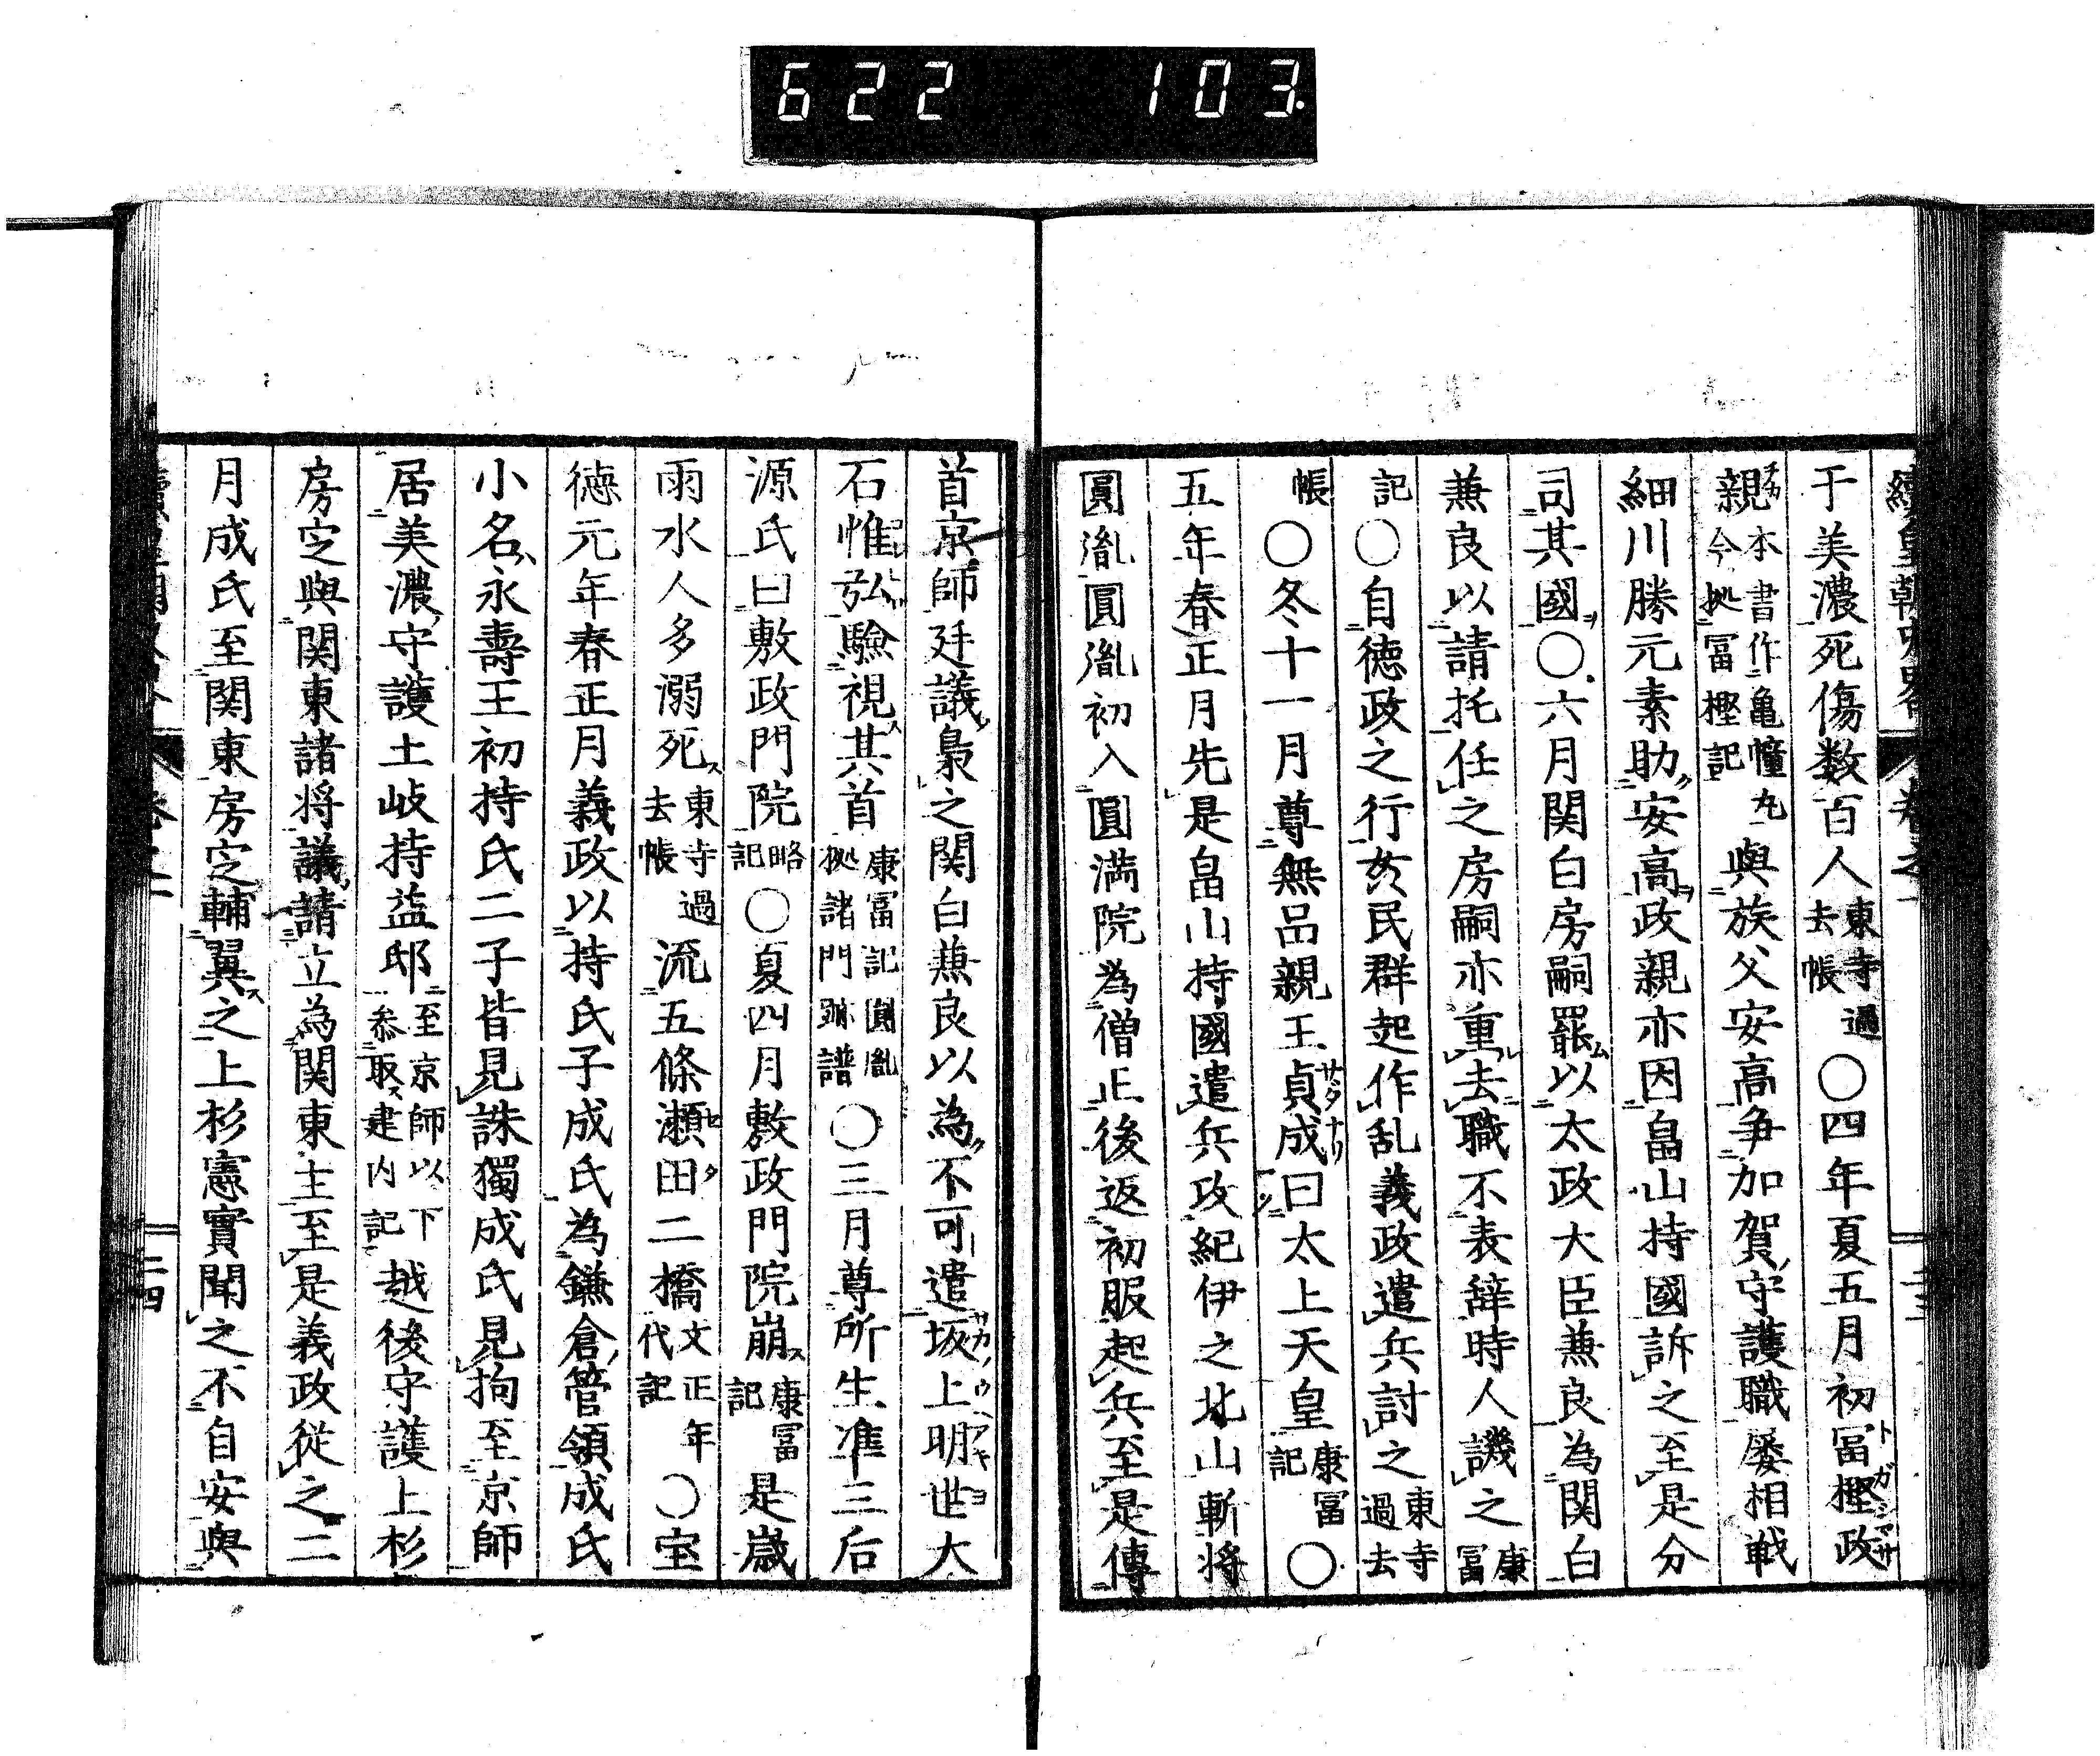 622 103.
于美濃死傷数百人東寺過去帳〇四年夏五月初冨樫政
親本書作亀幢丸今拠冨樫記與族父安高争加賀守護職屡相戦
細川勝元素助安高政親亦因畠山持國訴之至是分
司其國〇六月関白房嗣罷以太政大臣兼良為関白
兼良以請托任之房嗣亦重去職不表辞時人譏之康冨
記〇自徳政之行姦民群起作乱義政遣兵討之東寺過去
帳〇冬十一月尊無品親王貞成曰太上天皇康冨記〇
五年春正月先是畠山持國遣兵攻紀伊之北山斬将
圓胤圓胤初入圓満院為僧正後返初服起兵至是傳
首京師廷議梟之関白兼良以為不可遣坂上明世大
石惟弘驗視其首康冨記圓胤拠諸門跡譜〇三月尊所生准三后
源氏曰敷政門院略記〇夏四月敷政門院崩康冨記是歳
雨水人多溺死東寺過去帳流五條瀬田二橋文正年代記〇宝
徳元年春正月義政以持氏子成氏為鎌倉管領成氏
小名永壽王初持氏二子皆見誅獨成氏見拘至京師
居美濃守護土岐持益邸至京師以下参取建内記越後守護上杉
房定與関東諸将議請立為関東主至是義政従之二
月成氏至関東房定輔翼之上杉憲實聞之不自安與
二四